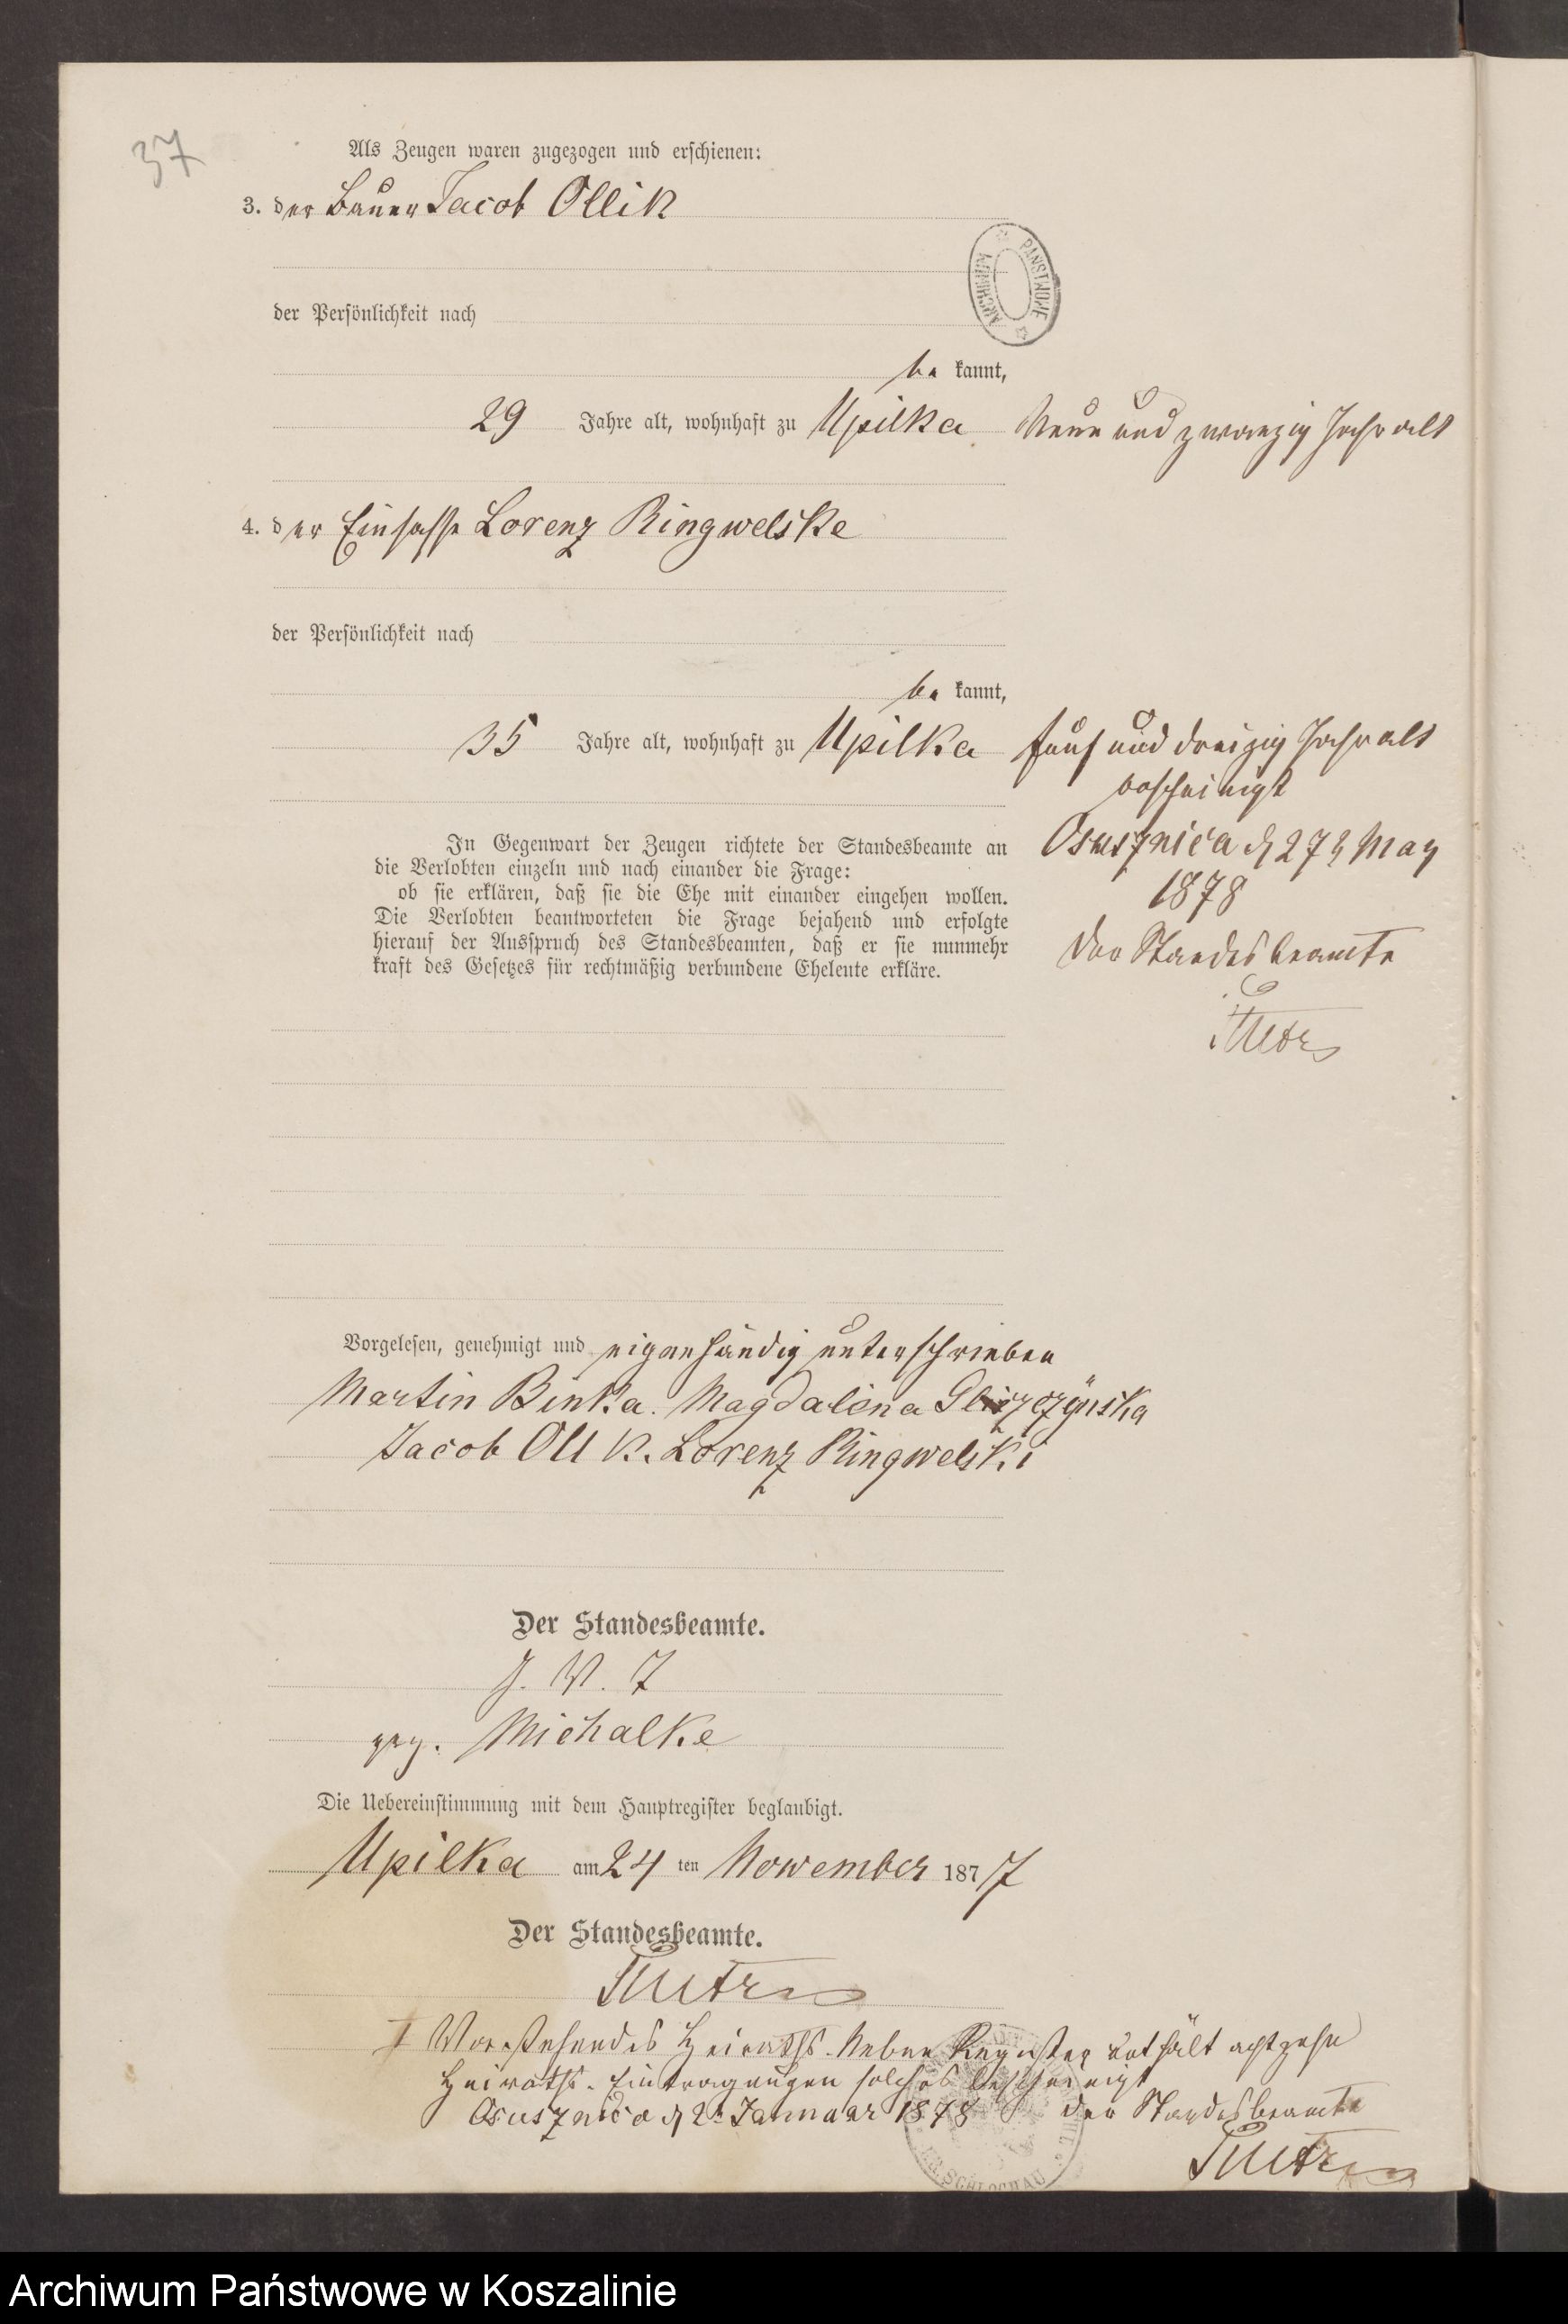 37
Als Zeugen waren zugezogen und erschienen:
3. der Bauer Jacob Ollik
der Persönlichkeit nach
be kannt,
29 Jahre alt, wohnhaft zu Upilka
Neun und zwanzig Jahr alt
4. der Einsasse Lorenz Ringwelske
der Persönlichkeit nach
be kannt,
35 Jahre alt, wohnhaft zu Upilka
fünf und dreizig Jahr alt
bescheinigt
Osusznica d 27t May
1878
Der Standesbeamte
In Gegenwart der Zeugen richtete der Standesbeamte an
die Verlobten einzeln und nach einander die Frage:
ob sie erklären, daß sie die Ehe mit einander eingehen wollen.
Die Verlobten beantworteten die Frage bejahend und erfolgte
hierauf der Ausspruch des Standesbeamten, daß er sie nunmehr
kraft des Gesetzes für rechtmäßig verbundene Eheleute erkläre.
Vorgelesen, genehmigt und eigenhändig unterschrieben
Martin Binka. Magdalena
Jacob Ollik. Lorenz Ringwelski
Der Standesbeamte.
J. V.
gez. Michalke
Die Uebereinstimmung mit dem Hauptregister beglaubigt.
Upilka am 24 ten Nowember 1877
Der Standesbeamte.
Vorstehendes Heiraths-Neben Register enthält achtzehn
Heiraths-Eintragungen solches bescheinigt
Osusznica d 2t Januar 1878 der Standesbeamte
ARCHIWUM PAŃSTWOWE
KR. SCHLOCHAU
Archiwum Państwowe w Koszalinie